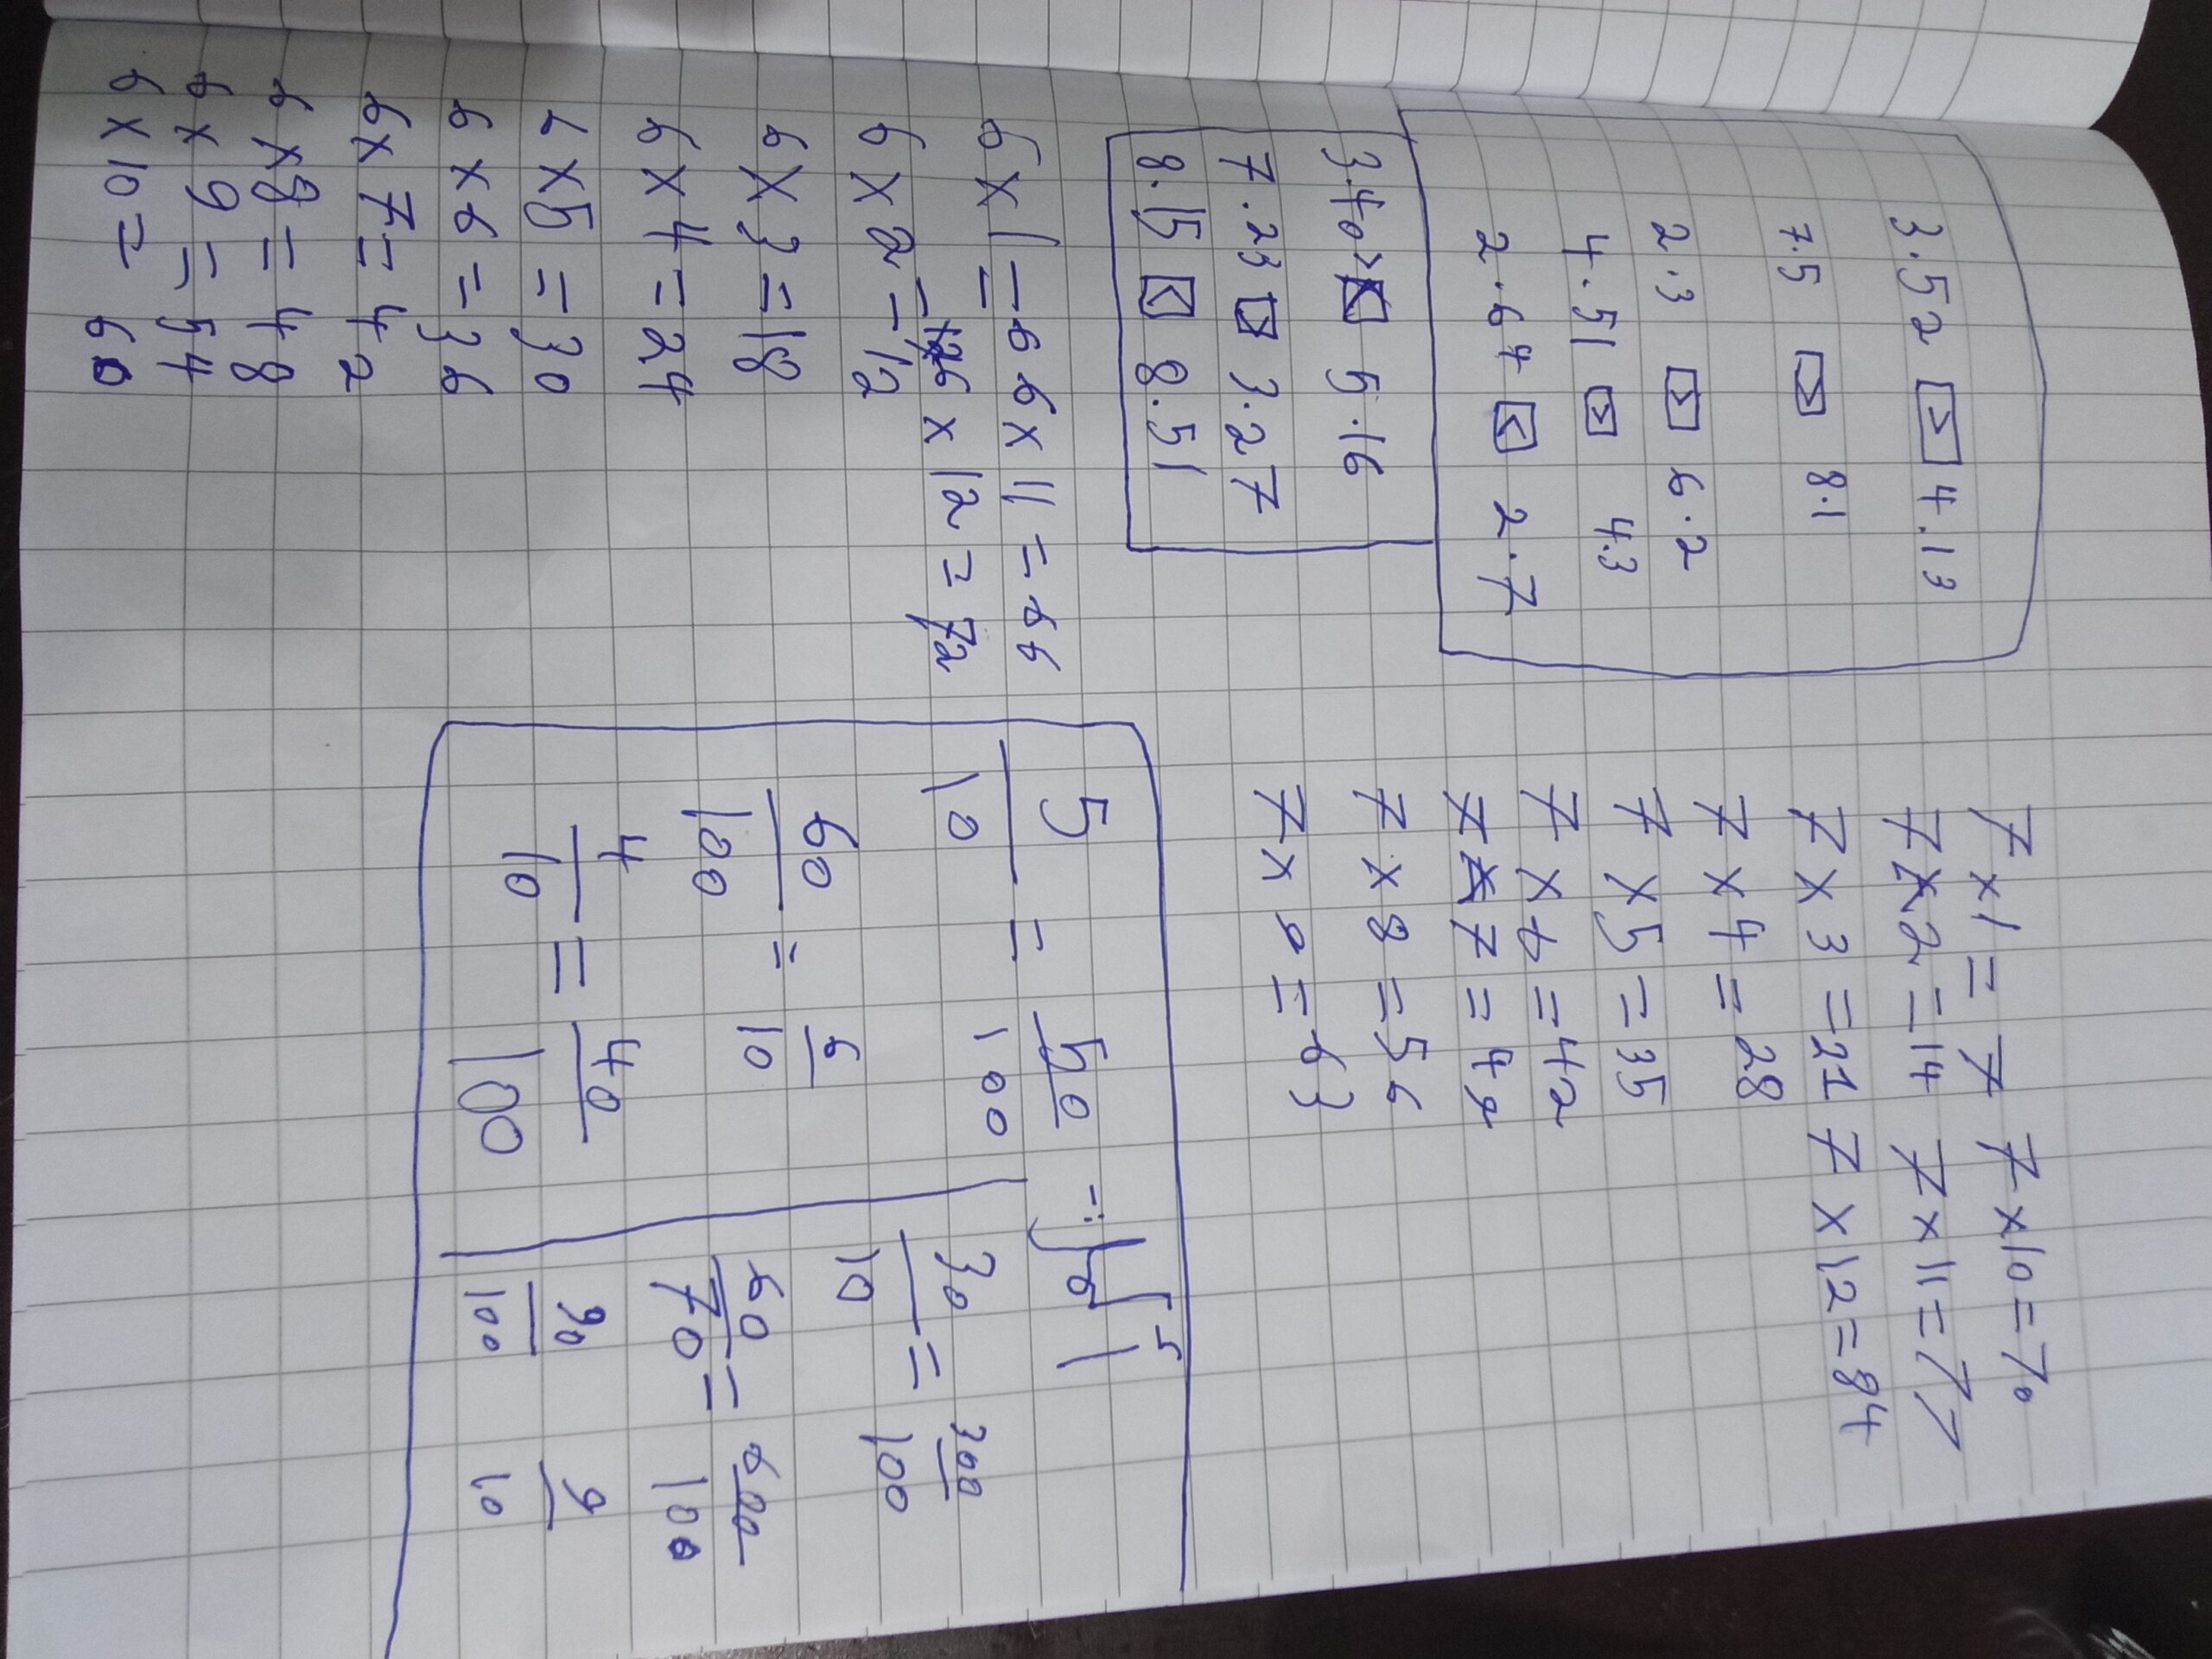 3.52 < 4.13
7.5 < 8.1
2.3 < 6.2
4.51 > 4.3
2.64 < 2.7
3.40 < 5.16
7.23 > 3.27
8.15 < 8.51
6 x 1 = 6
6 x 2 = 12
6 x 3 = 18
6 x 4 = 24
6 x 5 = 30
6 x 6 = 36
6 x 7 = 42
6 x 8 = 48
6 x 9 = 54
6 x 10 = 60
6 x 11 = 66
6 x 12 = 72
7 x 1 = 7
7 x 2 = 14
7 x 3 = 21
7 x 4 = 28
7 x 5 = 35
7 x 6 = 42
7 x 7 = 49
7 x 8 = 56
7 x 9 = 63
7 x 10 = 70
7 x 11 = 77
7 x 12 = 84
5/10 = 50/100
60/100 = 6/10
4/10 = 40/100
30/10 = 300/100
60/70 = 600/100
90/100 9/10